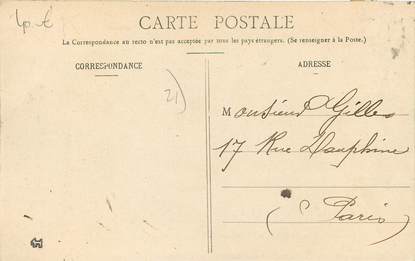 CARTE POSTALE
La Correspondance au recto n'est pas acceptée par tous les pays étrangers. (Se renseigner à la Poste.)
CORRESPONDANCE
ADRESSE
21)
Monsieur Gilles
17 Rue Dauphine
Paris